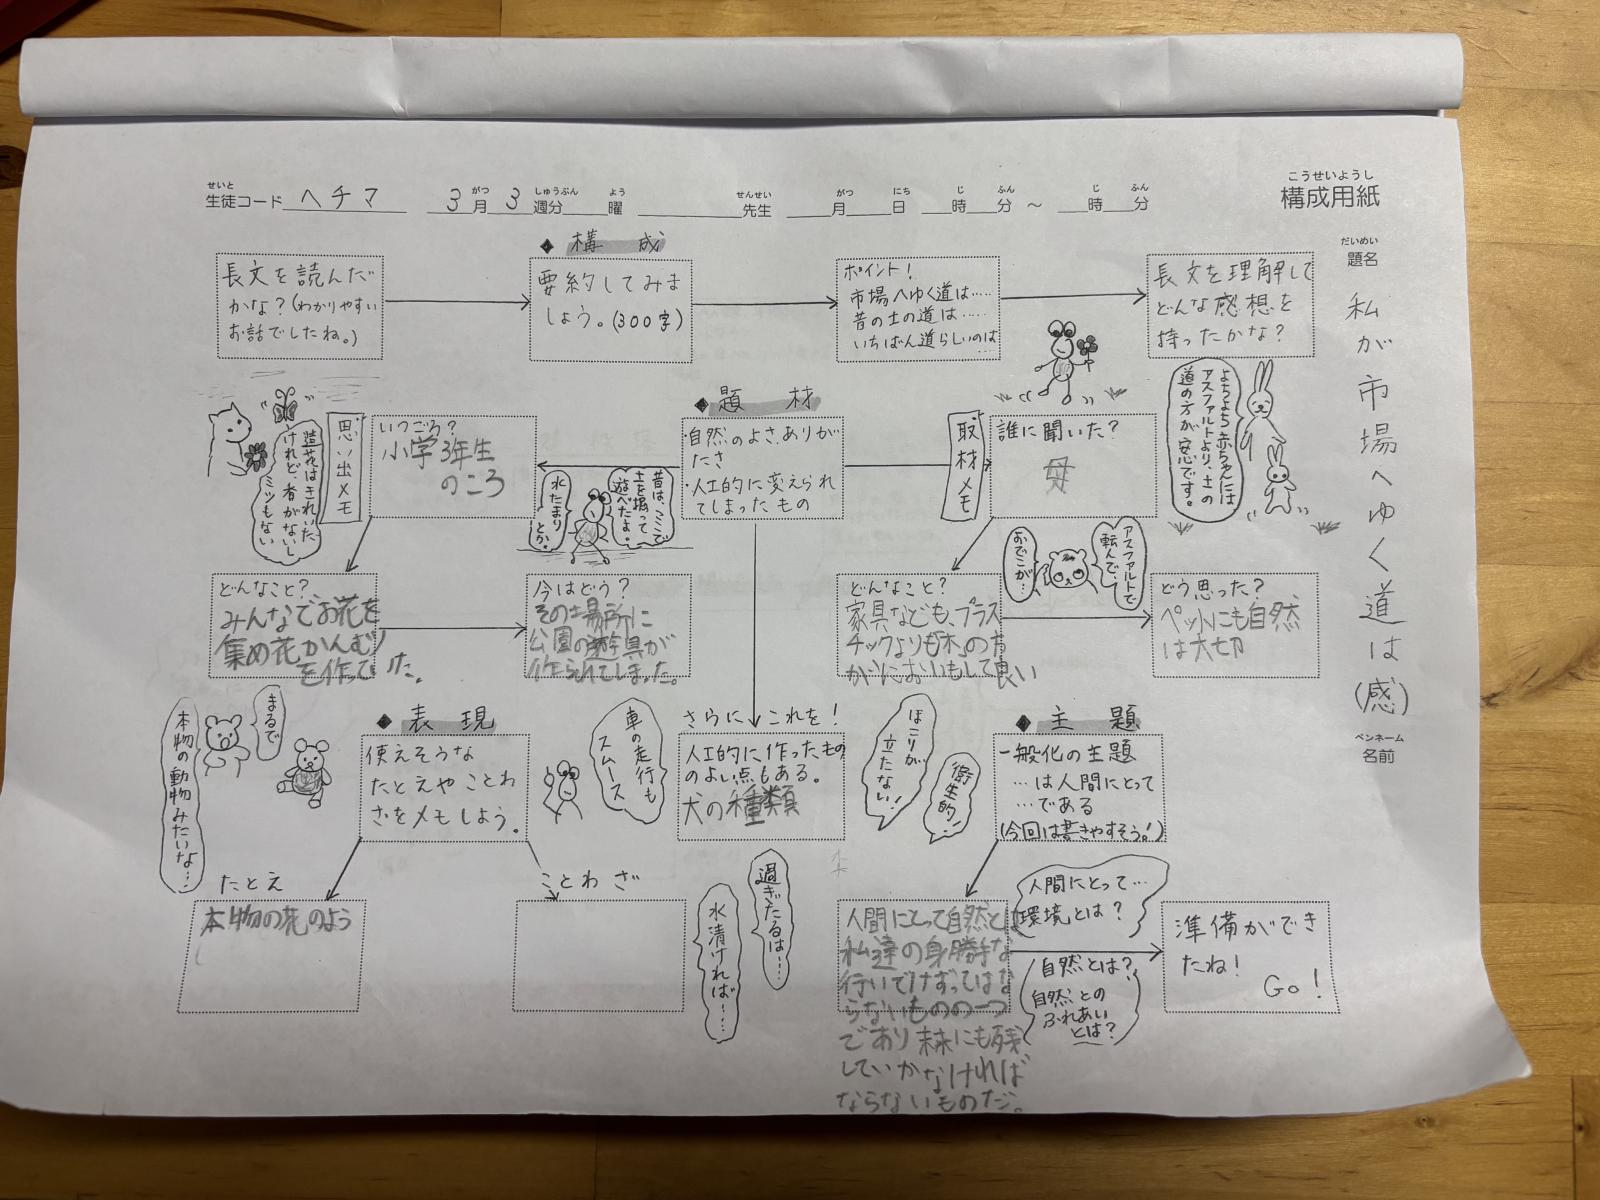 せいと
生徒コード ヘチマ 3月 3週分 曜 先生 月 日 時 分 ~ 時 分
がつ しゅうぶん よう せんせい がつ にち じ ふん じ ふん
こうせいようし
構成用紙
だいめい
題名
私が市場へゆく道は(感)
ペンネーム
名前
◆ 構 成
長文を読んだ
かな?(わかりやすい
お話でしたね。)
要約してみま
しょう。(300字)
ポイント!
市場へゆく道は……
昔の土の道は……
いちばん道らしいのは
……
長文を理解して
どんな感想を
持ったかな?
よちよち赤ちゃんには
アスファルトより、土の
道の方が安心です。
◆ 題 材
・自然のよさ、ありが
たさ
・人工的に変えられ
てしまったもの
取材メモ
誰に聞いた?
母
思い出メモ
いつごろ?
小学3年生
のころ
造花はきれいだ
けれど、香がないし
ミツもない
昔は、ここで
土を掘って
遊べたよ。
水たまり
とか。
アスファルトで
転んで…
おでこが…
どんなこと?
みんなでお花を
集め花かんむり
を作っていた。
今はどう?
その場所に
公園の遊具が
作られてしまった。
どんなこと?
家具なども、プラス
チックよりも木の方
がにおいもして良い
どう思った?
ペットにも自然
は大切
◆ 表 現
使えそうな
たとえや ことわ
ざをメモしよう。
まるで
本物の動物みたいな…
車の走行も
スムース
さらに これを!
人工的に作ったもの
のよい点もある。
犬の種類
ほこりが
立たない!
衛生的!
◆ 主 題
一般化の主題
…は人間にとって
…である
(今回は書きやすそう!)
たとえ
本物の花のよう
ことわざ
過ぎたるは……
水清ければ……
人間にとって自然とは
私達の身勝手な
行いでけずってはな
らないものの一つ
であり未来にも残
していかなければ
ならないものだ。
人間にとって…
環境とは?
自然とは?
自然との
ふれあい
とは?
準備ができ
たね!
Go!